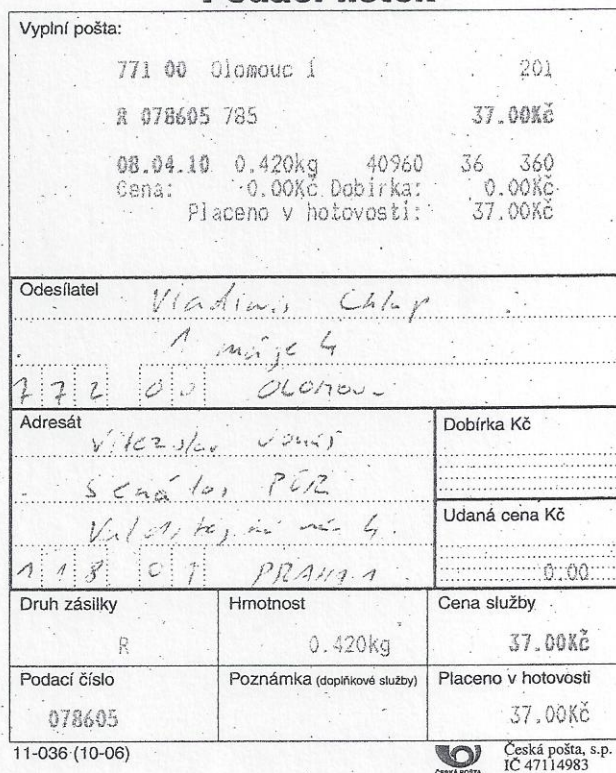 Podací lístek
Vyplní pošta:
771 00 Olomouc 1 201
R 078605 785 37.00Kč
08.04.10 0.420kg 40960 36 360
Cena: 0.00Kč Dobírka: 0.00Kč
Placeno v hotovosti: 37.00Kč
Odesílatel
Vladimír Chlup
1 máje 4
772 00 OLOMOUC
Adresát
Vítězslav Jonáš
Senátor PČR
4
118 01 PRAHA 1
Dobírka Kč
Udaná cena Kč
0.00
Druh zásilky
R
Hmotnost
0.420kg
Cena služby
37.00Kč
Podací číslo
078605
Poznámka (doplňkové služby)
Placeno v hotovosti
37.00Kč
11-036 (10-06)
ČESKÁ POŠTA
Česká pošta, s.p.
IČ 47114983